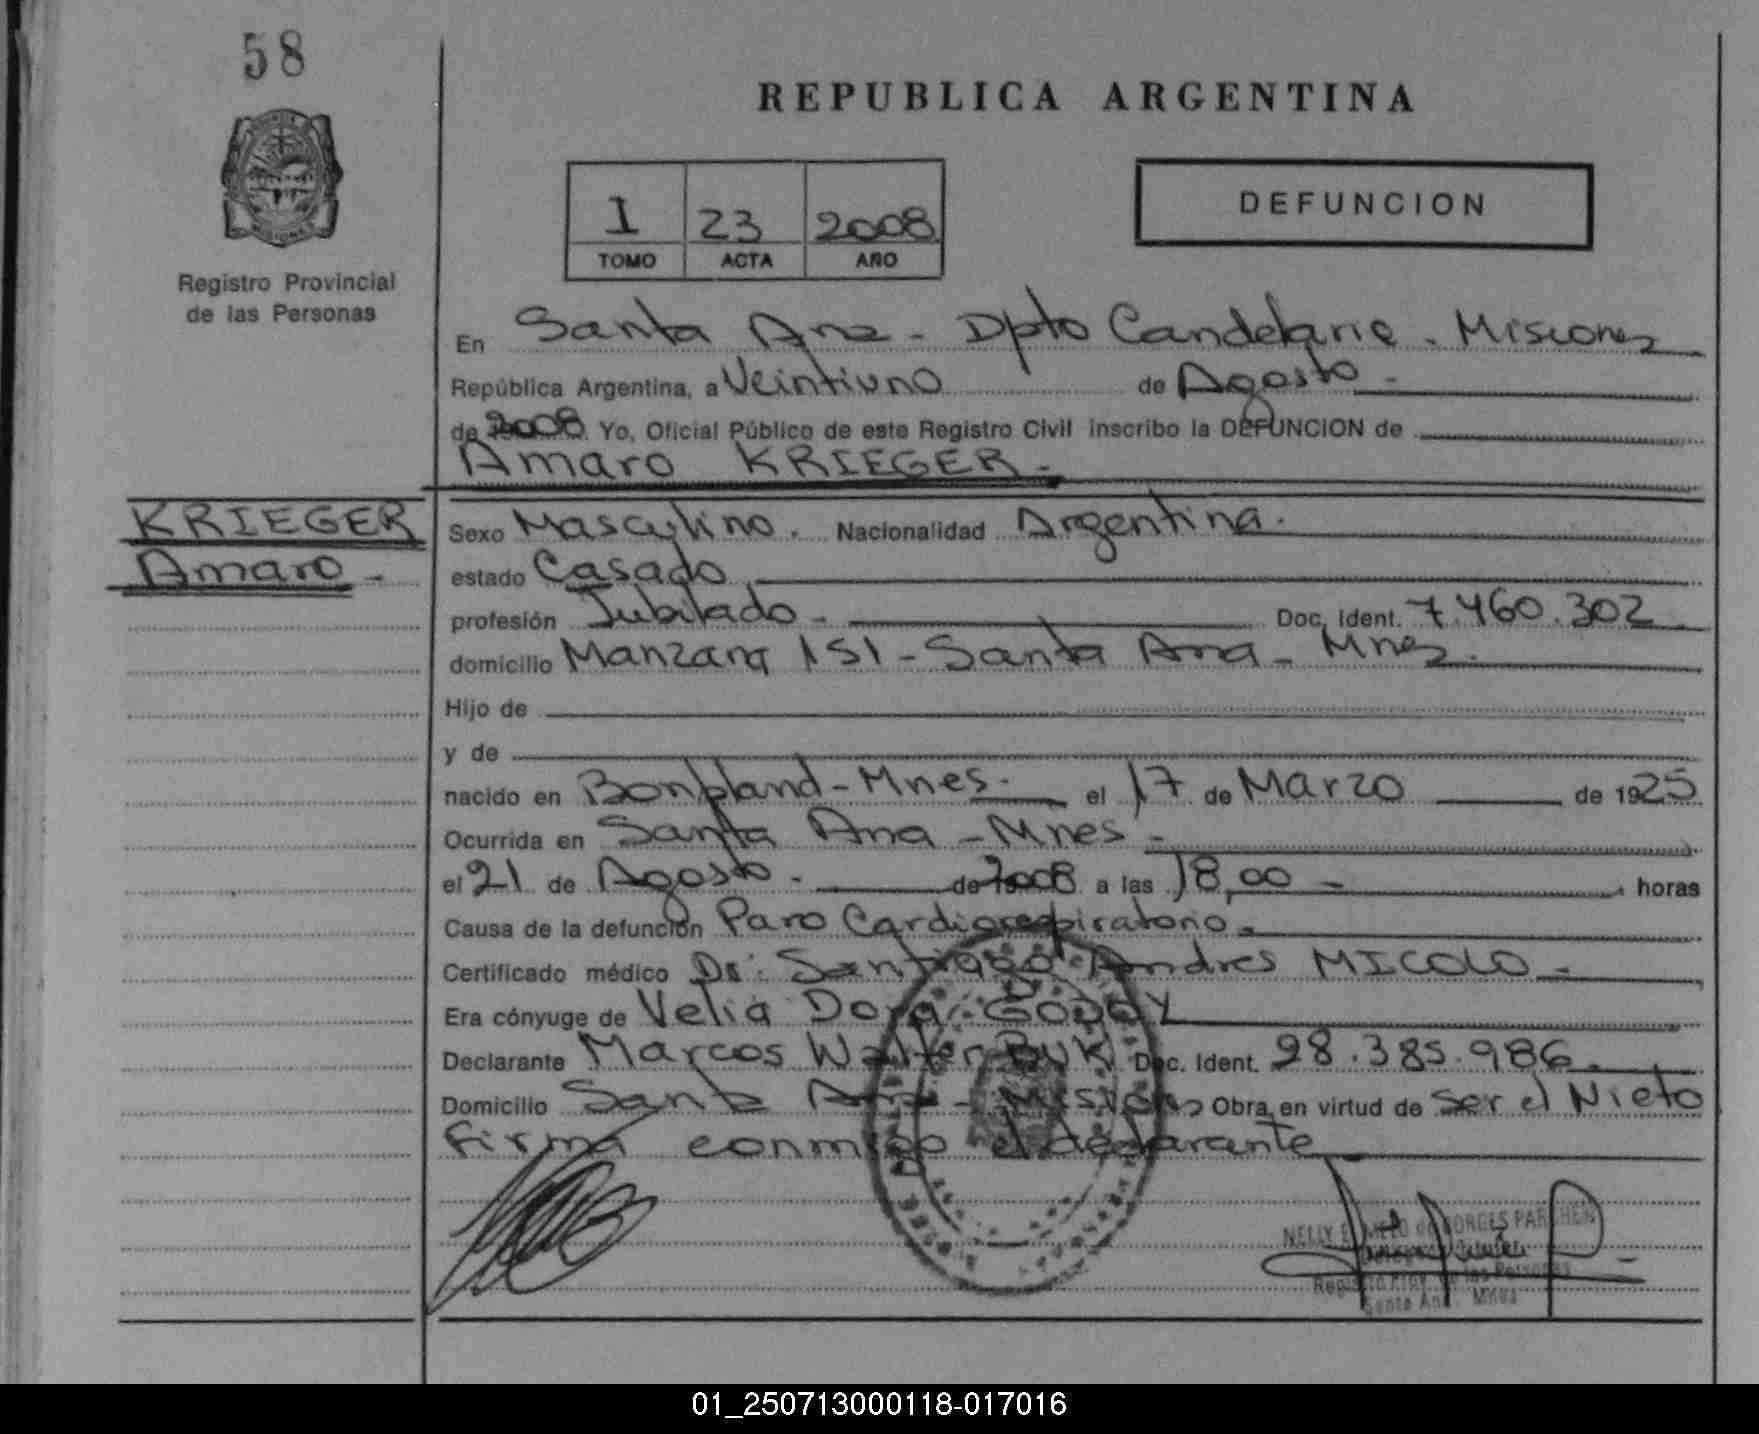 58
REPUBLICA ARGENTINA
1 23 2008
TOMO ACTA AÑO
DEFUNCION
Registro Provincial
de las Personas
En Santa Ana - Dpto Candelaria - Misiones
República Argentina, a Veintiuno de Agosto -
de 2008 Yo, Oficial Público de este Registro Civil inscribo la DEFUNCION de
Amaro KRIEGER -
KRIEGER
Amaro -
Sexo Masculino. Nacionalidad Argentina.
estado Casado
profesión Jubilado - Doc. Ident. 7.460.302
domicilio Manzana 151 - Santa Ana - Mnes.
Hijo de
y de
nacido en Bonpland - Mnes. el 17 de Marzo de 1925
Ocurrida en Santa Ana - Mnes -
el 21 de Agosto - de 2008 a las 18,00 - horas
Causa de la defunción Paro Cardiorespiratorio -
Certificado médico Dr: Santiago Andres MICOLO -
Era cónyuge de Velia Dora GODOY
Declarante Marcos Walter BUK Doc. Ident. 28.385.986
Domicilio Santa Ana - Misiones Obra en virtud de ser el Nieto
firma conmigo el declarante
NELLY E. MELO de BORGES PARCHEN
Registro Prov. de las Personas
Santa Ana - Mnes
01_250713000118-017016